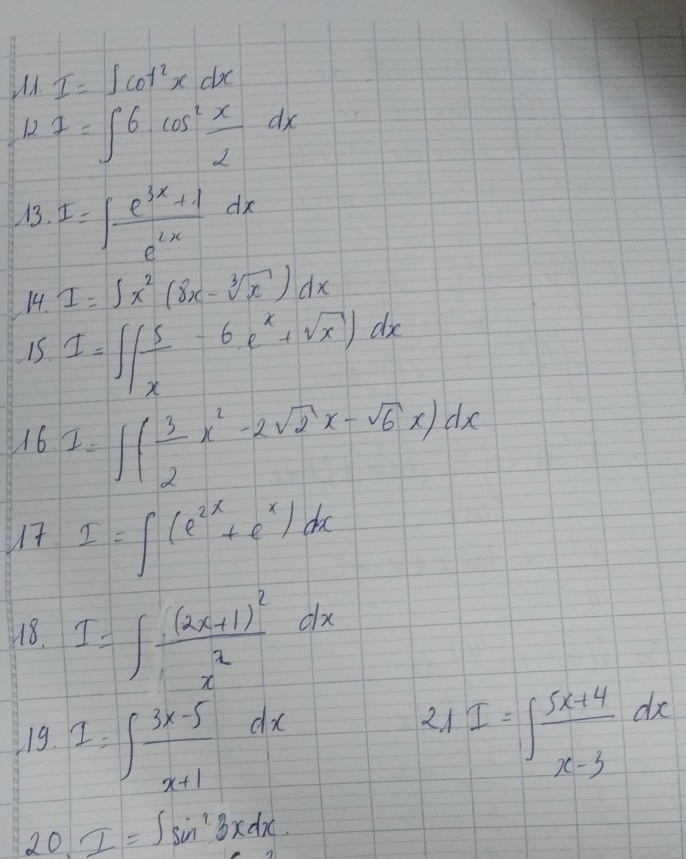 11. I = ∫ cot²x dx
12 I = ∫ 6 cos² x/2 dx
13. I = ∫ (e^{3x} + 1)/e^{2x} dx
14. I = ∫ x² (8x - ∛x) dx
15. I = ∫ (5/x - 6.e^x + √x) dx
16. I = ∫ (3/2 x² - 2√2 x - √6 x) dx
17. I = ∫ (e^{2x} + e^x) dx
18. I = ∫ (2x+1)²/x² dx
19. I = ∫ (3x-5)/(x+1) dx
21 I = ∫ (5x+4)/(x-3) dx
20. I = ∫ sin² 3x dx.